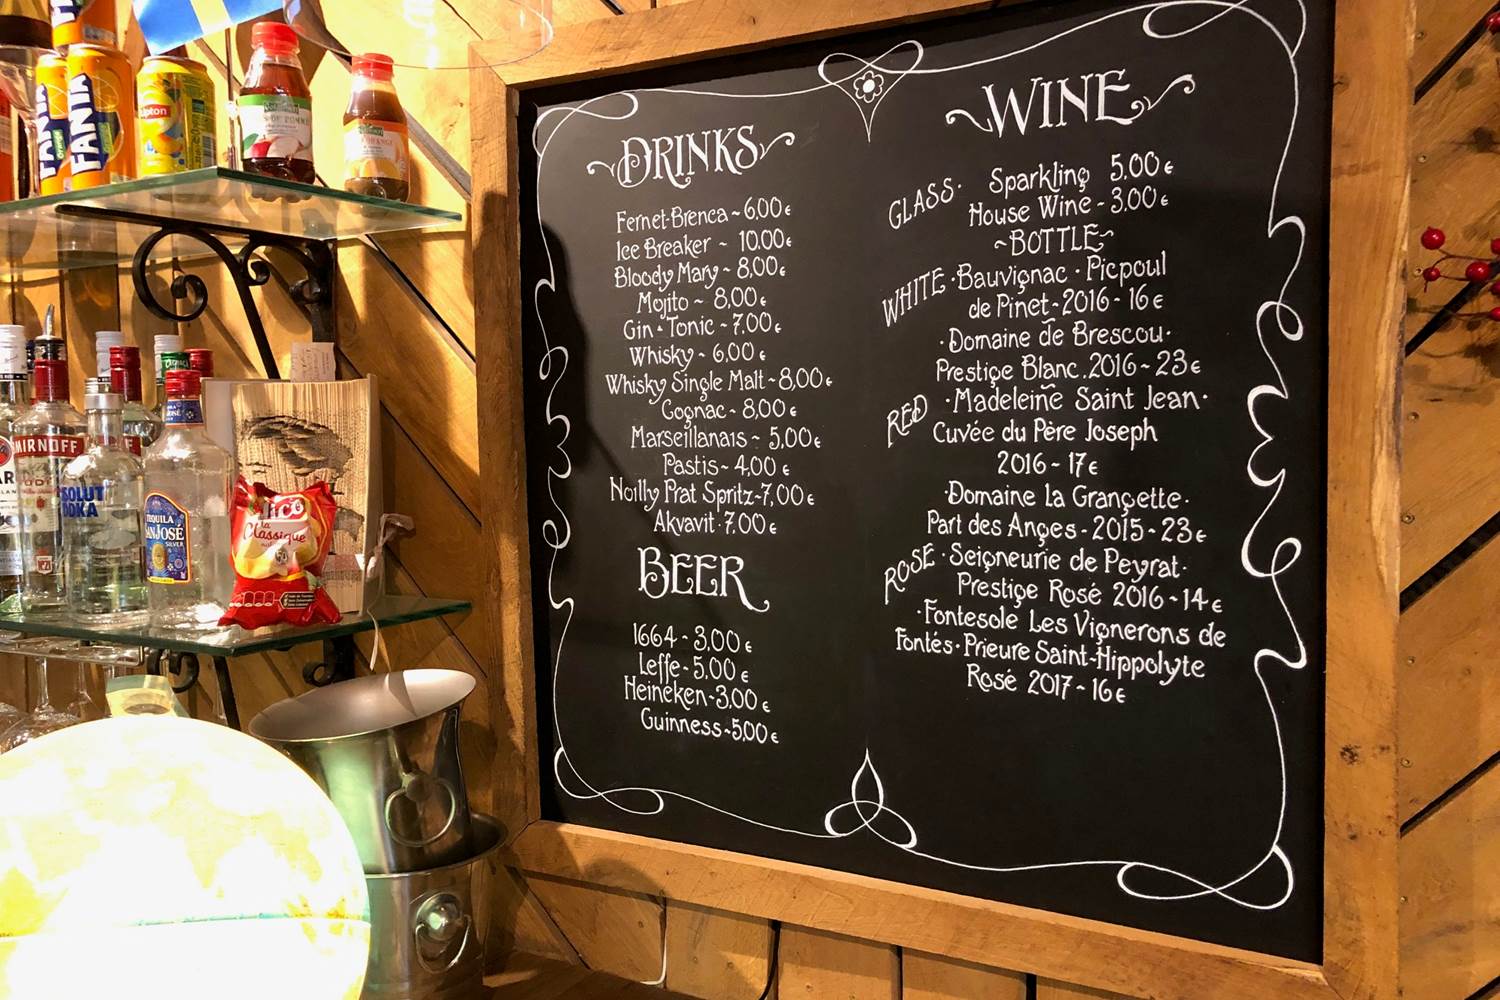 FANTA
FANTA
Lipton
SMIRNOFF
TEQUILA
SAN JOSÉ
SILVER
la
Classique
DRINKS
Fernet-Brenca ~ 6,00 €
Ice Breaker ~ 10.00 €
Bloody Mary ~ 8,00 €
Mojito ~ 8,00 €
Gin - Tonic ~ 7,00 €
Whisky ~ 6,00 €
Whisky Single Malt ~ 8,00 €
Cognac ~ 8,00 €
Marseillanais ~ 5,00 €
Pastis ~ 4,00 €
Noilly Prat Spritz ~ 7,00 €
Akvavit · 7.00 €
BEER
1664 - 3,00 €
Leffe - 5,00 €
Heineken - 3,00 €
Guinness ~ 5,00 €
WINE
GLASS · Sparkling 5.00 €
House Wine - 3,00 €
~BOTTLE~
WHITE · Bauvignac · Picpoul
de Pinet - 2016 - 16 €
· Domaine de Brescou ·
Prestige Blanc . 2016 ~ 23 €
RED · Madeleine Saint Jean ·
Cuvée du Père Joseph
2016 - 17 €
· Domaine La Grangette ·
Part des Anges - 2015 - 23 €
ROSÉ · Seigneurie de Peyrat ·
Prestige Rosé 2016 ~ 14 €
· Fontesole Les Vignerons de
Fontés · Prieure Saint-Hippolyte
Rosé 2017 ~ 16 €